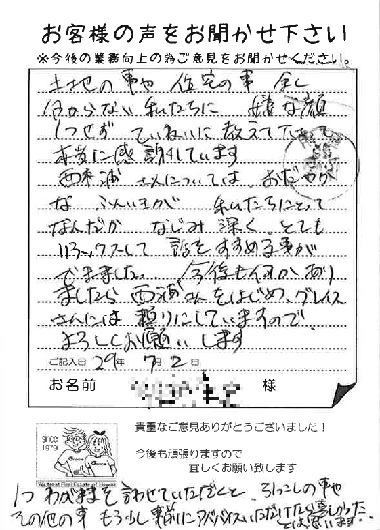 お客様の声をお聞かせ下さい
※今後の業務向上の為ご意見をお聞かせください。
土地の事や 住宅の事 全く
分からない 私たちに 嫌な顔
1つせず ていねいに 教えて下さって
本当に感謝しています
西浦 さんについては、おだやか
な ふんいきが 私たちにとって
なんだか なじみ 深く、とても
リラックスして 話をすすめる事が
できました。 今後も何か、あり
ましたら 西浦さんをはじめ、グレイス
さんには 頼りにしていますので
よろしくお願いします
ご記入日 29年 7月 2日
お名前 様
SINCE 1979
貴重なご意見ありがとうございました！
今後も頑張りますので
宜しくお願い致します
1つ わがままを言わせていただくと、引っこしの事や
その他の事 もう少し事前にアドバイスいただけたら嬉しかった
とは思います。